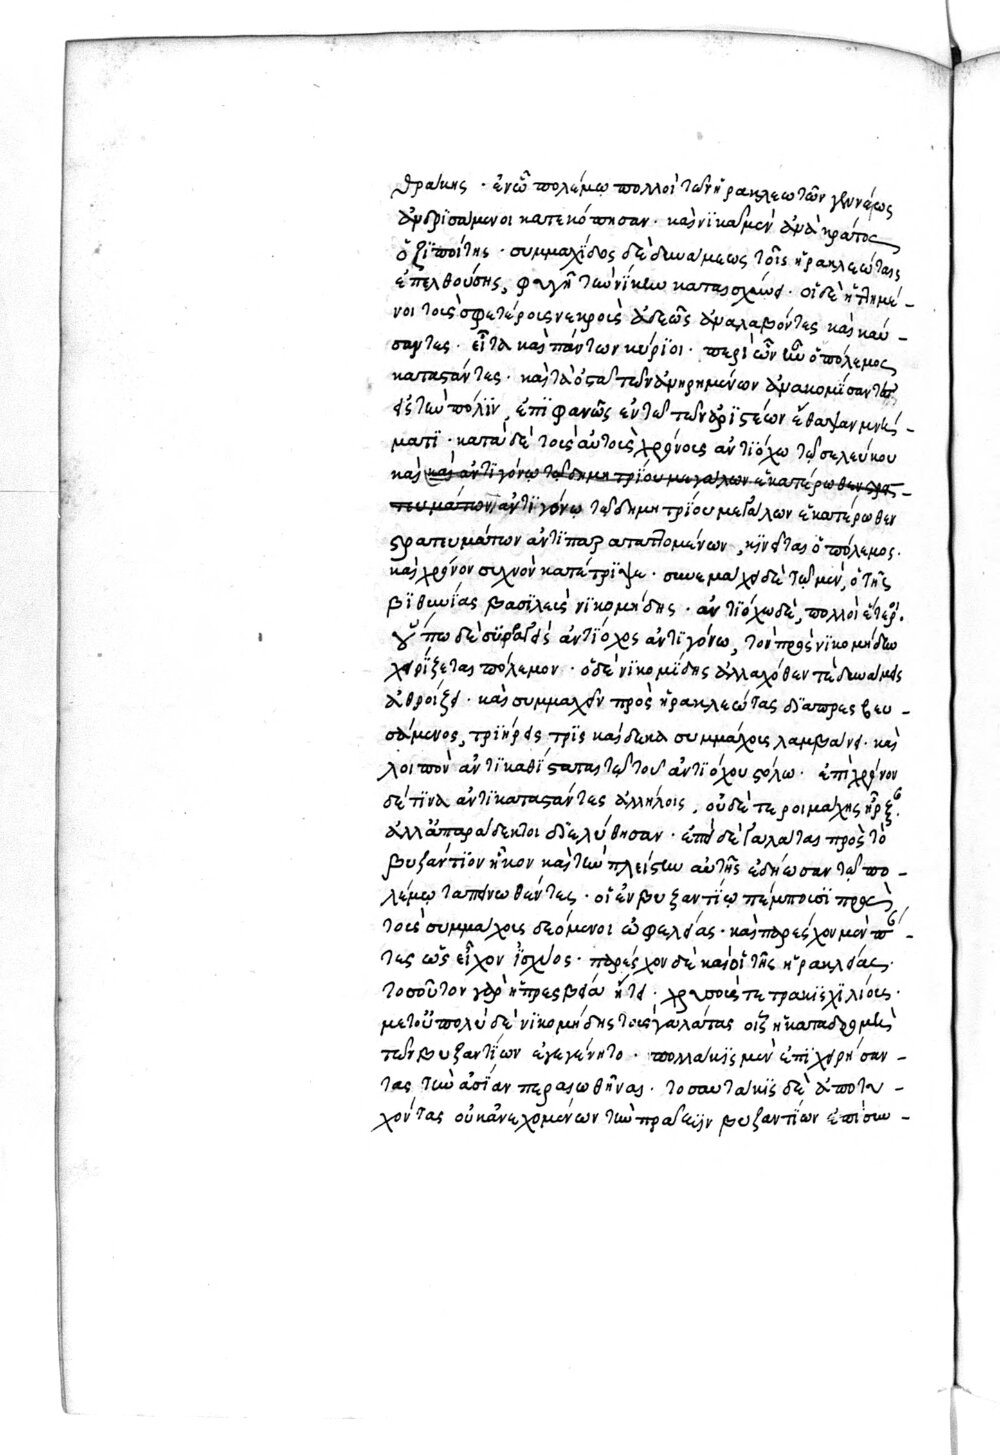 θράκης · ἐν ᾧ πολέμῳ πολλοὶ τῶν ἡρακλεωτῶν γενναίως
ἀνδρισάμενοι κατεκόπησαν · καὶ νικᾷ μὲν ἀνὰ κράτος
ὁ ζϊποίτης · συμμαχίδος δὲ δυνάμεως τοῖς ἡρακλεώταις
ἐπελθούσης, φυγῇ τὴν νίκην καταισχύνει · οἱ δὲ ἡττημέ-
νοι τοὺς σφετέρους νεκροὺς ἀδεῶς ἀναλαβόντες καὶ καύ-
σαντες · εἶτα καὶ πάντων κύριοι · περὶ ὧν ἦν ὁ πόλεμος
καταστάντες · καὶ τὰ ὀστᾶ τῶν ἀνῃρημένων ἀνακομίσαντες
εἰς τὴν πόλϊν, ἐπϊφανῶς ἐν τῷ τῶν ἀρϊστέων ἔθαψαν μνή-
ματϊ · κατὰ δὲ τοὺς αὐτοὺς χρόνους ἀντϊόχῳ τῷ σελεύκου
καὶ καὶ ἀντϊγόνῳ τῷ δημητρίου μεγάλων ἑκατέρωθεν στρα-
τευμάτων ἀντϊγόνῳ τῷ δημητρίου μεγάλων ἑκατέρωθεν
στρατευμάτων ἀντϊπαραταττομένων, κϊνεῖται ὁ πόλεμος ·
καὶ χρόνον συχνὸν κατέτρϊψε · συνεμάχει δὲ τῷ μὲν, ὁ τῆς
βϊθυνίας βασϊλεὺς νϊκομήδης · ἀντϊόχῳ δὲ, πολλοὶ ἕτεροι ·
οὕπω δὲ συρραγεὶς ἀντίοχος ἀντϊγόνῳ, τὸν πρὸς νϊκομήδην
χειρίζεται πόλεμον · ὁ δὲ νϊκομήδης ἀλλαχόθεν τε δυνάμεις
ἀθροίζει · καὶ συμμαχεῖν πρὸς ἡρακλεώτας διαπρεσβευ-
σάμενος, τριήρεις τρὶς καὶ δεκα συμμάχους λαμβάνει · καὶ
λοιπὸν ἀντϊκαθίσταται τῷ τοῦ ἀντϊόχου στόλῳ · ἐπὶ χρόνον
δέ τϊνα ἀντϊκαταστάντες ἀλλήλοις, οὐδέτεροι μάχης ἦρξαν ·
ἀλλ' ἄπρακτοι διελύθησαν · ἐπεὶ δὲ γαλάται πρὸς τὸ
βυζάντιον ἧκον καὶ τὴν πλείστην αὐτῆς ἐδῄωσαν τῷ πο-
λέμῳ ταπεινωθέντες · οἱ ἐν βυζαντίῳ πέμπουσϊ πρὸς
τοὺς συμμάχους δεόμενοι ὠφελείας · καὶ παρέσχον μὲν πάν-
τες ὡς εἶχον ἰσχύος · παρέσχον δὲ καὶ οἱ τῆς ἡρακλείας ·
τοσοῦτον γὰρ ἡ πρεσβεία ᾔτει · χρυσοῦς τετρακϊσχϊλίους ·
μετ' οὐ πολὺ δὲ νϊκομήδης τοὺς γαλάτας οἷς ἡ καταδρομὴ
τῶν βυζαντίων ἐγεγένητο · πολλάκϊς μὲν ἐπϊχειρήσαν-
τας τὴν ἀσίαν περαιωθῆναι · τοσαυτάκϊς δὲ ἀποτυ-
χόντας οὐκ ἀνεχομένων τὴν πρᾶξιν βυζαντίων ἐπὶ συν-